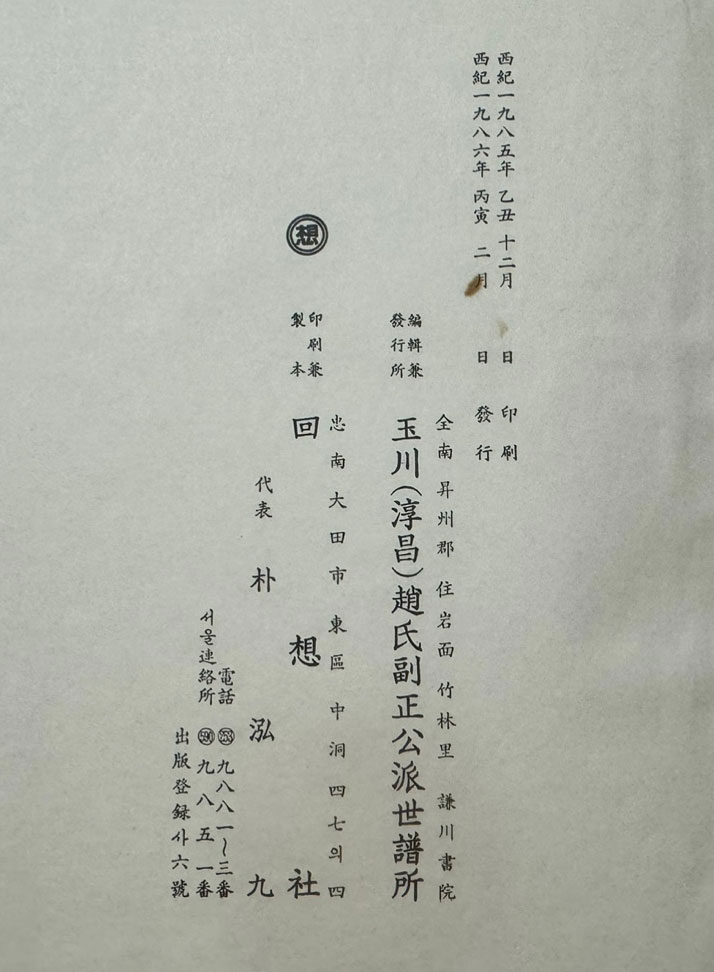 西紀一九八五年 乙丑 十二月 日 印刷
西紀一九八六年 丙寅 二月 日 發行
全南昇州郡 住岩面 竹林里 謙川書院
編輯兼
發行所
玉川(淳昌)趙氏副正公派世譜所
忠南大田市 東區 中洞四七의四
印刷兼
製本
想
回想社
代表 朴泓九
電話 253 九八八一~三番
서울連絡所 590 九八五一番
出版登録사六號